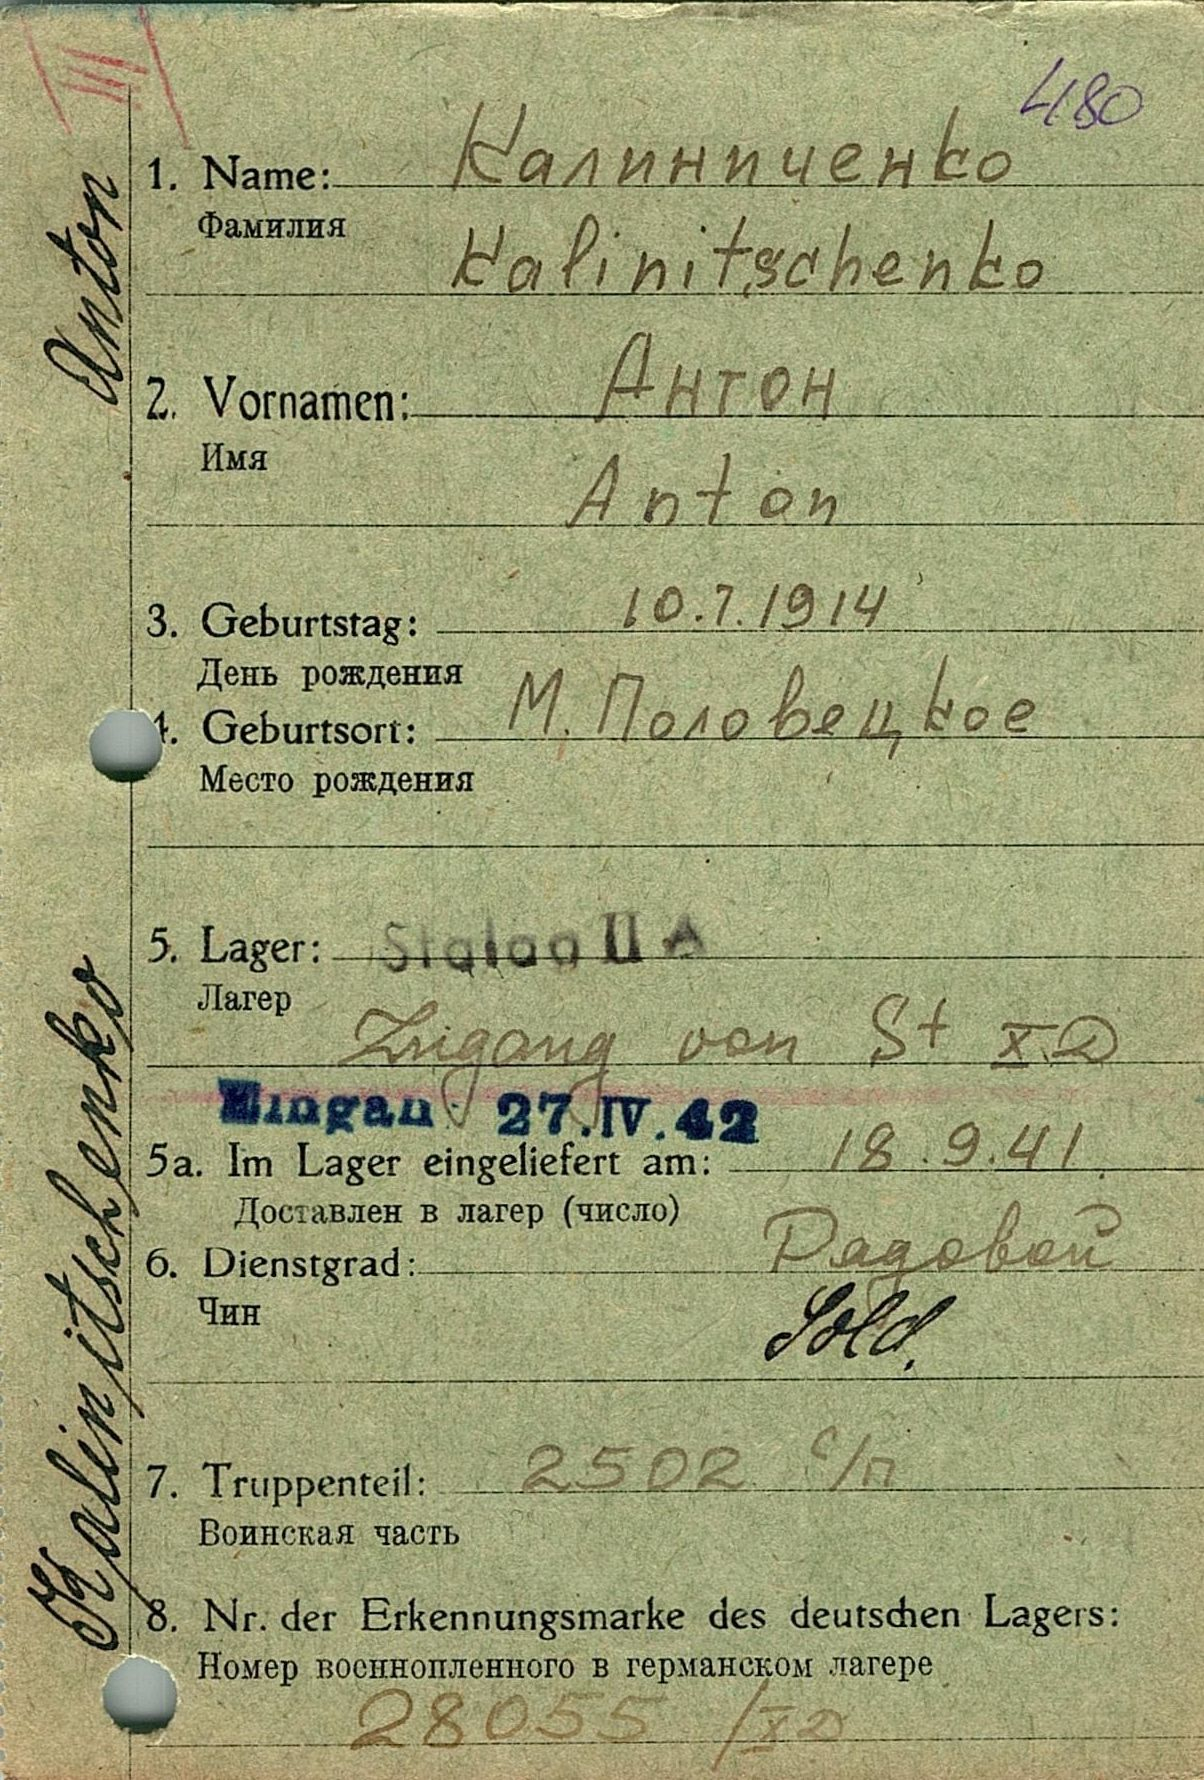 III
480
1. Name: Калиниченко
Фамилия
Kalinitschenko
2. Vornamen: Антон
Имя
Anton
3. Geburtstag: 10.7.1914
День рождения
4. Geburtsort: М. Половецкое
Место рождения
5. Lager: Stalag II A
Лагер
Zugang von St X D
Eingan 27.IV.42
5a. Im Lager eingeliefert am: 18.9.41.
Доставлен в лагер (число)
6. Dienstgrad: Рядовой
Чин
Sold.
7. Truppenteil: 2502 с/п
Воинская часть
8. Nr. der Erkennungsmarke des deutschen Lagers:
Номер военнопленного в германском лагере
28055 /X D
Kalinitschenko Anton